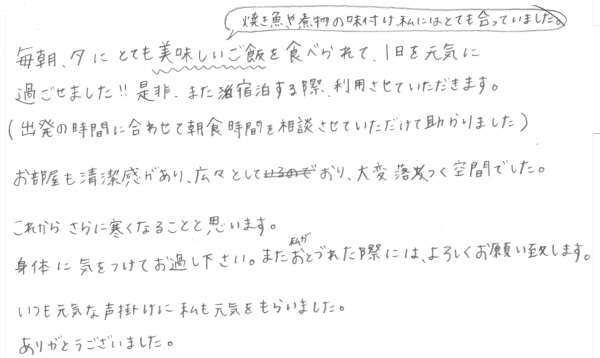 焼き魚や煮物の味付け、私にはとても合っていました。
毎朝、夕にとても美味しいご飯を食べられて、1日を元気に
過ごせました!!是非、また宿泊する際、利用させていただきます。
(出発の時間に合わせて朝食時間を相談させていただけて助かりました)
お部屋も清潔感があり、広々としており、大変落ちつく空間でした。
これからさらに寒くなることと思います。
身体に気をつけてお過し下さい。また私がおとづれた際には、よろしくお願い致します。
いつも元気な声掛けに私も元気をもらいました。
ありがとうございました。